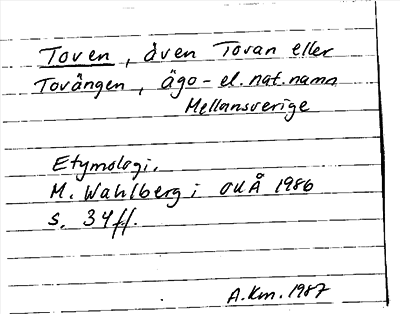 Toven, även Tovan eller
Tovängen, ägo- el. nat. namn
Mellansverige
Etymologi.
M. Wahlberg i OUÅ 1986
s. 34 ff.
A.Km. 1987